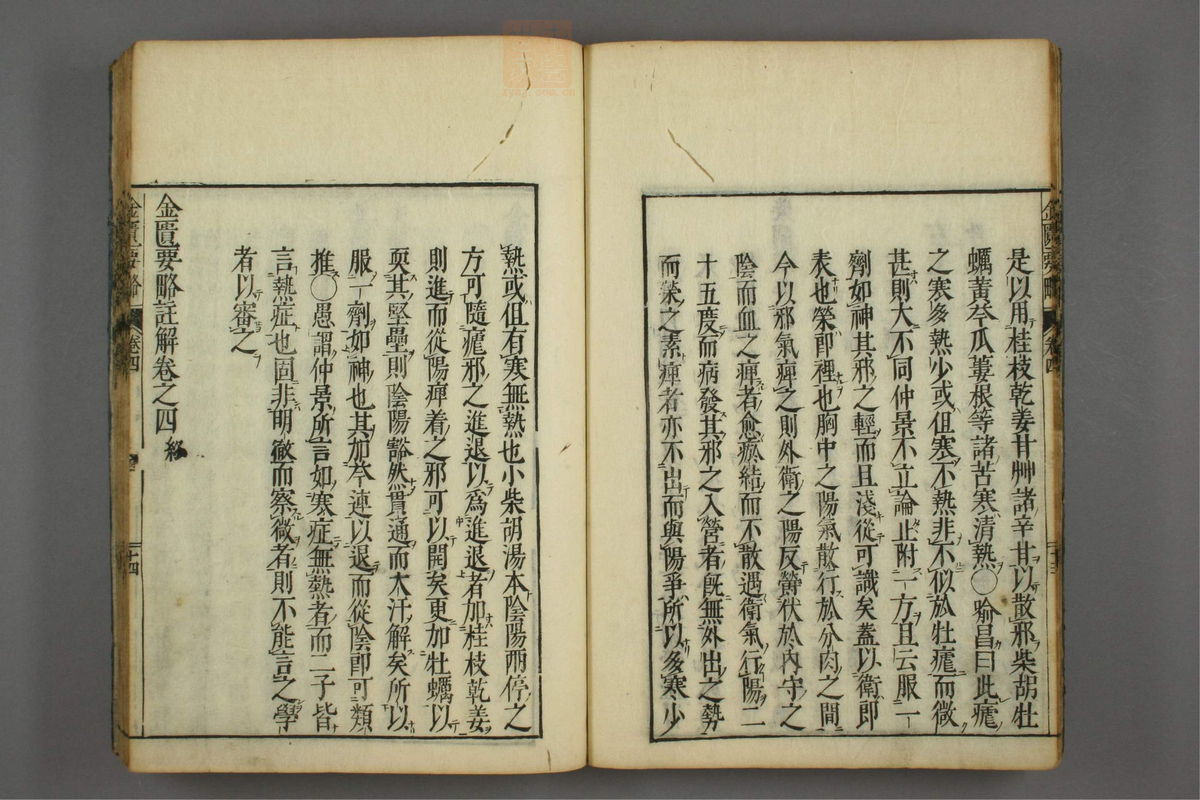 是以用桂枝乾姜甘艸諸辛甘以散邪柴胡牡
蠣黃芩瓜蔞根等諸苦寒清熱〇喻昌曰此瘧
之寒多熱少或但寒不熱非不似於牡瘧而微
甚則大不同仲景不立論止附一方且云服一
劑如神其邪之輕而且淺從可識矣蓋以衛即
表也榮即裡也胸中之陽氣散行於分肉之間
今以邪氣痺之則外衛之陽反鬱伏於內守之
陰而血之痺者愈瘀結而不散遇衛氣行陽二
十五度而病發其邪之入營者既無外出之勢
而榮之素痺者亦不出而與陽爭所以多寒少
熱或但有寒無熱也小柴胡湯本陰陽兩停之
方可隨瘧邪之進退以為進退者加桂枝乾姜
則進而從陽痺着之邪可以開矣更加牡蠣以
耎其堅壘則陰陽豁然貫通而大汗解矣所以
服一劑如神也其加芩連以退而從陰即可類
推〇愚謂仲景所言如寒症無熱者而二子皆
言熱症也固非明徹而察微者則不能言之學
者以審之
金匱要略註解卷之四 終
金匱要略 卷四 十四